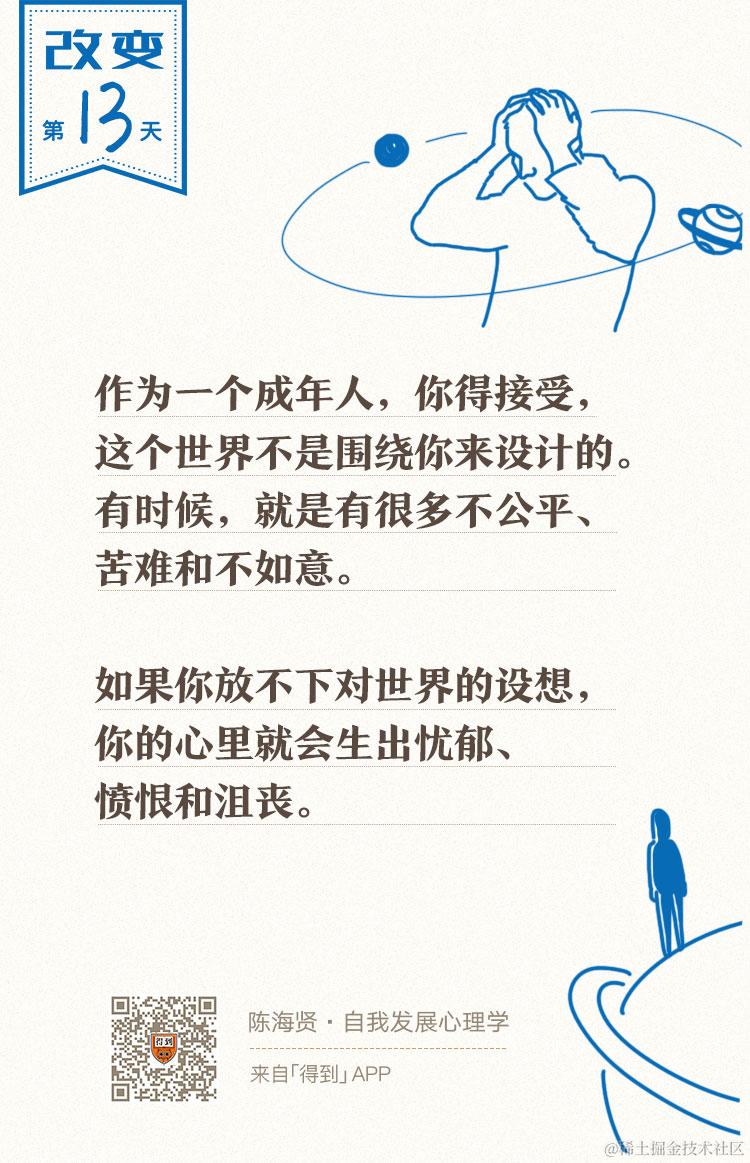 改变
第13天
作为一个成年人，你得接受，
这个世界不是围绕你来设计的。
有时候，就是有很多不公平、
苦难和不如意。
如果你放不下对世界的设想，
你的心里就会生出忧郁、
愤恨和沮丧。
得到
陈海贤·自我发展心理学
来自「得到」APP
@稀土掘金技术社区